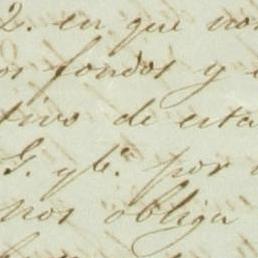 2. en que nos
os fondos y
tivo de esta
G. y Cª. por
nos obliga